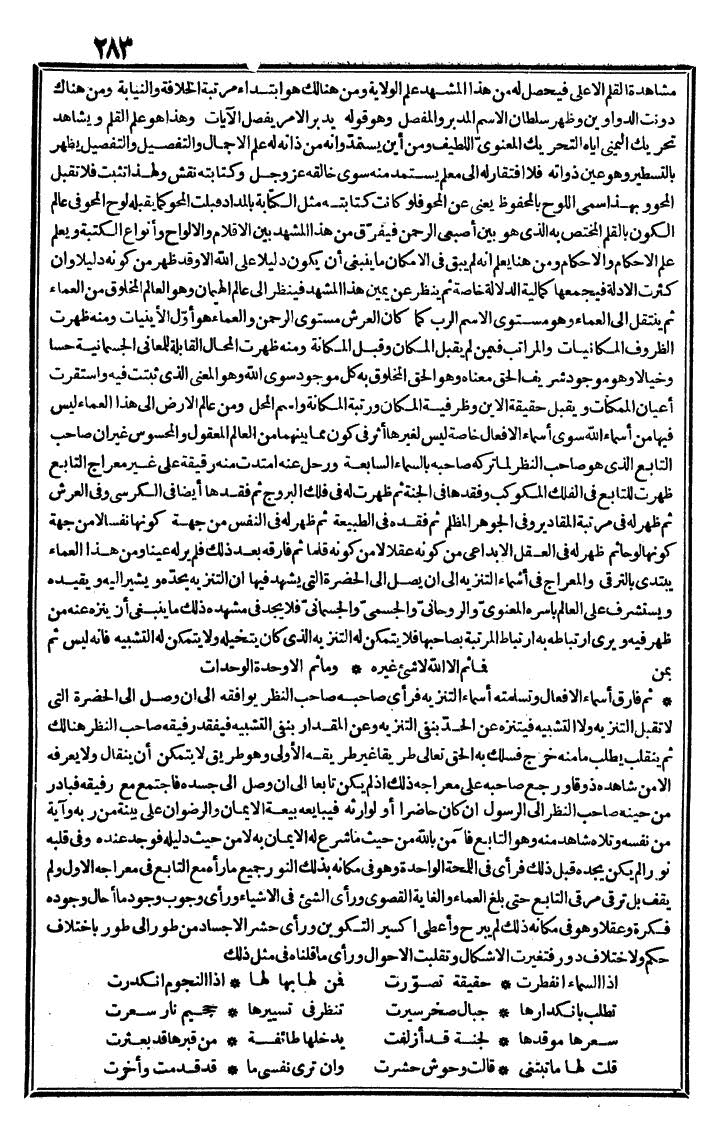 ٢٨٣
مشاهدة القلم الاعلى فيحصل له من هذا المشهد علم الولاية ومن هنالك هو ابتداء مرتبة الخلافة والنيابة ومن هناك
دونت الدواوين وظهر سلطان الاسم المدبر والمفصل وهو قوله يدبر الامر يفصل الآيات وهذا هو علم القلم ويشاهد
تحريك اليمنى اياه التحريك المعنوى اللطيف ومن أين يستمد وانه من ذاته له علم الاجمال والتفصيل والتفصيل يظهر
بالتسطير وهو عين ذواته فلا افتقار له الى معلم يستمد منه سوى خالقه عز وجل وكتابته نقش ولهذا تثبت فلا تقبل
المحو وبهذا سمى اللوح بالمحفوظ يعنى عن المحو فلو كانت كتابته مثل الكتابة بالمداد قبلت المحو كما يقبله لوح المحو فى عالم
الكون بالقلم المختص به الذى هو بين أصبعى الرحمن فيفرق من هذا المشهد بين الاقلام والالواح وأنواع الكتبة ويعلم
علم الاحكام والاحكام ومن هنا يعلم انه لم يبق فى الامكان ما ينبغى أن يكون دليلا على الله الا وقد ظهر من كونه دليلا وان
كثرت الادلة فيجمعها كمالية الدلالة خاصة ثم ينظر عن يمين هذا المشهد فينظر الى عالم الهيمان وهو العالم المخلوق من العماء
ثم ينتقل الى العماء وهو مستوى الاسم الرب كما كان العرش مستوى الرحمن والعماء هو أول الأينيات ومنه ظهرت
الظروف المكانيات والمراتب فيمن لم يقبل المكان وقبل المكانة ومنه ظهرت المحال القابلة للمعانى الجسمانية حسا
وخيالا وهو موجود شريف الحق معناه وهو الحق المخلوق به كل موجود سوى الله وهو المعنى الذى ثبتت فيه واستقرت
أعيان الممكنات ويقبل حقيقة الاين وظرفية المكان ورتبة المكانة واسم المحل ومن عالم الارض الى هذا العماء ليس
فيها من أسماء الله سوى أسماء الافعال خاصة ليس لغيرها أثر فى كون مما بينهما من العالم المعقول والمحسوس غير ان صاحب
التابع الذى هو صاحب النظر لما تركه صاحبه بالسماء السابعة ورحل عنه امتدت منه رقيقة على غير معراج التابع
ظهرت للتابع فى الفلك المكوكب وفقدها فى الجنة ثم ظهرت له فى فلك البروج ثم فقدها أيضا فى الكرسى وفى العرش
ثم ظهر له فى مرتبة المقادير وفى الجوهر المظلم ثم فقده فى الطبيعة ثم ظهر له فى النفس من جهة كونها نفسا لا من جهة
كونها لوحا ثم ظهر له فى العقل الابداعى من كونه عقلا لا من كونه قلما ثم فارقه بعد ذلك فلم ير له عينا ومن هذا العماء
يبتدى بالترقى والمعراج فى أسماء التنزيه الى ان يصل الى الحضرة التى يشهد فيها ان التنزيه يحده ويشير اليه ويقيده
ويستشرف على العالم باسره المعنوى والروحانى والجسمى والجسمانى فلا يجد فى مشهده ذلك ما ينبغى أن ينزه عنه من
ظهر فيه ويرى ارتباطه به ارتباط المرتبة بصاحبها فلا يتمكن له التنزيه الذى كان يتخيله ولا يتمكن له التشبيه فانه ليس ثم
بمن فما ثم الا الله لا شئ غيره * وما ثم الا وحدة الوحدات
* ثم فارق أسماء الافعال وتسلمته أسماء التنزيه فرأى صاحبه صاحب النظر يوافقه الى ان وصل الى الحضرة التى
لا تقبل التنزيه ولا التشبيه فيتنزه عن الحد بنفى التنزيه وعن المقدار بنفى التشبيه فيفقد رفيقه صاحب النظر هنالك
ثم ينقلب يطلب ما منه خرج فسلك به الحق تعالى طريقا غير طريقه الأولى وهو طريق لا يتمكن أن ينقال ولا يعرفه
الا من شاهده ذوقا ورجع صاحبه على معراجه ذلك اذ لم يكن تابعا الى ان وصل الى جسده فاجتمع مع رفيقه فبادر
من حينه صاحب النظر الى الرسول ان كان حاضرا أو لوارثه فيبايعه بيعة الايمان والرضوان على بينة من ربه وآية
من نفسه وتلاه شاهد منه وهو التابع فآمن بالله من حيث ما شرع له الايمان به لا من حيث دليله فوجد عنده وفى قلبه
نورا لم يكن يجده قبل ذلك فرأى فى اللمحة الواحدة وهو فى مكانه بذلك النور جميع ما رآه مع التابع فى معراجه الاول ولم
يقف بل ترقى مرقى التابع حتى بلغ العماء والغاية القصوى ورأى الشئ فى الاشياء ورأى وجوب وجود ما أحال وجوده
فكرة وعقلا وهو فى مكانه ذلك لم يبرح وأعطى اكسير التكوين ورأى حشر الاجساد من طور الى طور باختلاف
حكم ولاختلاف دور فتغيرت الاشكال وتقلبت الاحوال ورأى ما قلناه فى مثل ذلك
اذا السماء انفطرت * حقيقة تصورت فمن لها بها لها * اذا النجوم انكدرت
تطلب بانكدارها * جبال صخر سيرت تنظر فى تسييرها * جحيم نار سعرت
سعرها موقدها * لجنة قد أزلفت يدخلها طائفة * من قبرها قد بعثرت
قلت لها ما تبتغى * قالت وحوش حشرت وان ترى نفسى ما * قد قدمت وأخرت